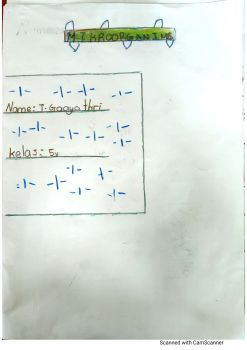 MIKROORGANIMS
Name: T. Gaayathri
kelas: 5v
Scanned with CamScanner